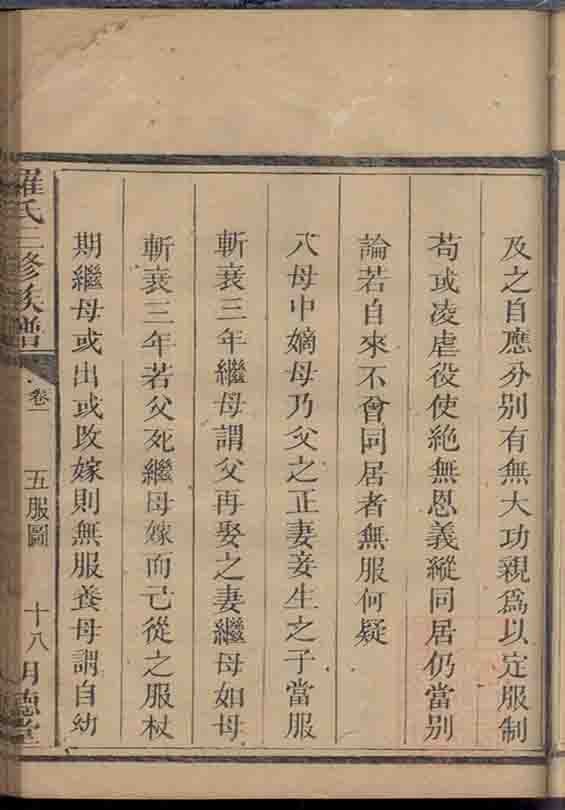 及之自應分別有無大功親爲以定服制
苟或凌虐役使絶無恩義縱同居仍當別
論若自來不曾同居者無服何疑
八母中嫡母乃父之正妻妾生之子當服
斬衰三年繼母謂父再娶之妻繼母如母
斬衰三年若父死繼母嫁而己從之服杖
期繼母或出或改嫁則無服養母謂自幼
羅氏三修族譜
卷一
五服圖
十八
明德堂